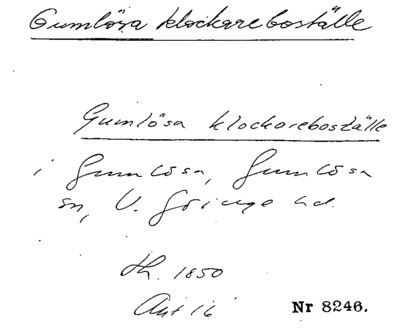 Gumlösa klockareboställe
Gumlösa klockareboställe
i Gumlösa, Gumlösa
sn, V. Göinge hd.
th. 1850
Akt 16
Nr 8246.